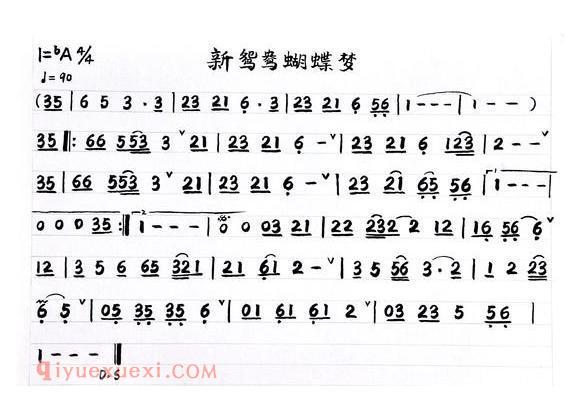 新鸳鸯蝴蝶梦
1=ᵇA 4/4
♩=90
(35 | 6 5 3 · 3 | 23 21 6 · 3 | 23 21 6 56 | 1 - - - | 1 - - )
35 ‖: 66 553 3 ˅ 21 | 23 21 6 - ˅ | 23 21 6 123 | 2 - - ˅
35 | 66 553 3 ˅ 21 | 23 21 6 - ˅ | 23 21 65 56 | 1. 1 - - -
0 0 0 35 :‖ 2. 1 - - - | 0 0 03 21 | 22 232 2 12 | 16 56 6 ˅
12 | 3 5 6 65 321 | 21 61 2 - ˅ | 3 5 56 3 · 2 | 1 2 23
6 5 ˅ | 05 35 35 6 ˅ | 01 61 61 2 ˅ | 03 23 5 56 |
1 - - - ‖
D.S
qiyuexuexi.com